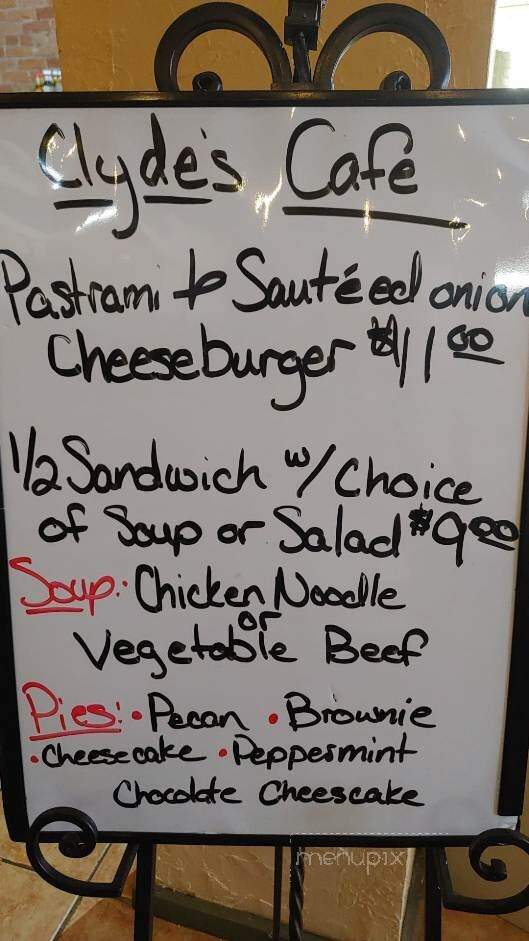 Clyde's Cafe
Pastrami & Sautéed onion
Cheeseburger $11.00
1/2 Sandwich w/ Choice
of Soup or Salad $9.00
Soup: Chicken Noodle
or
Vegetable Beef
Pies: • Pecan • Brownie
• Cheesecake • Peppermint
Chocolate Cheescake
menupix